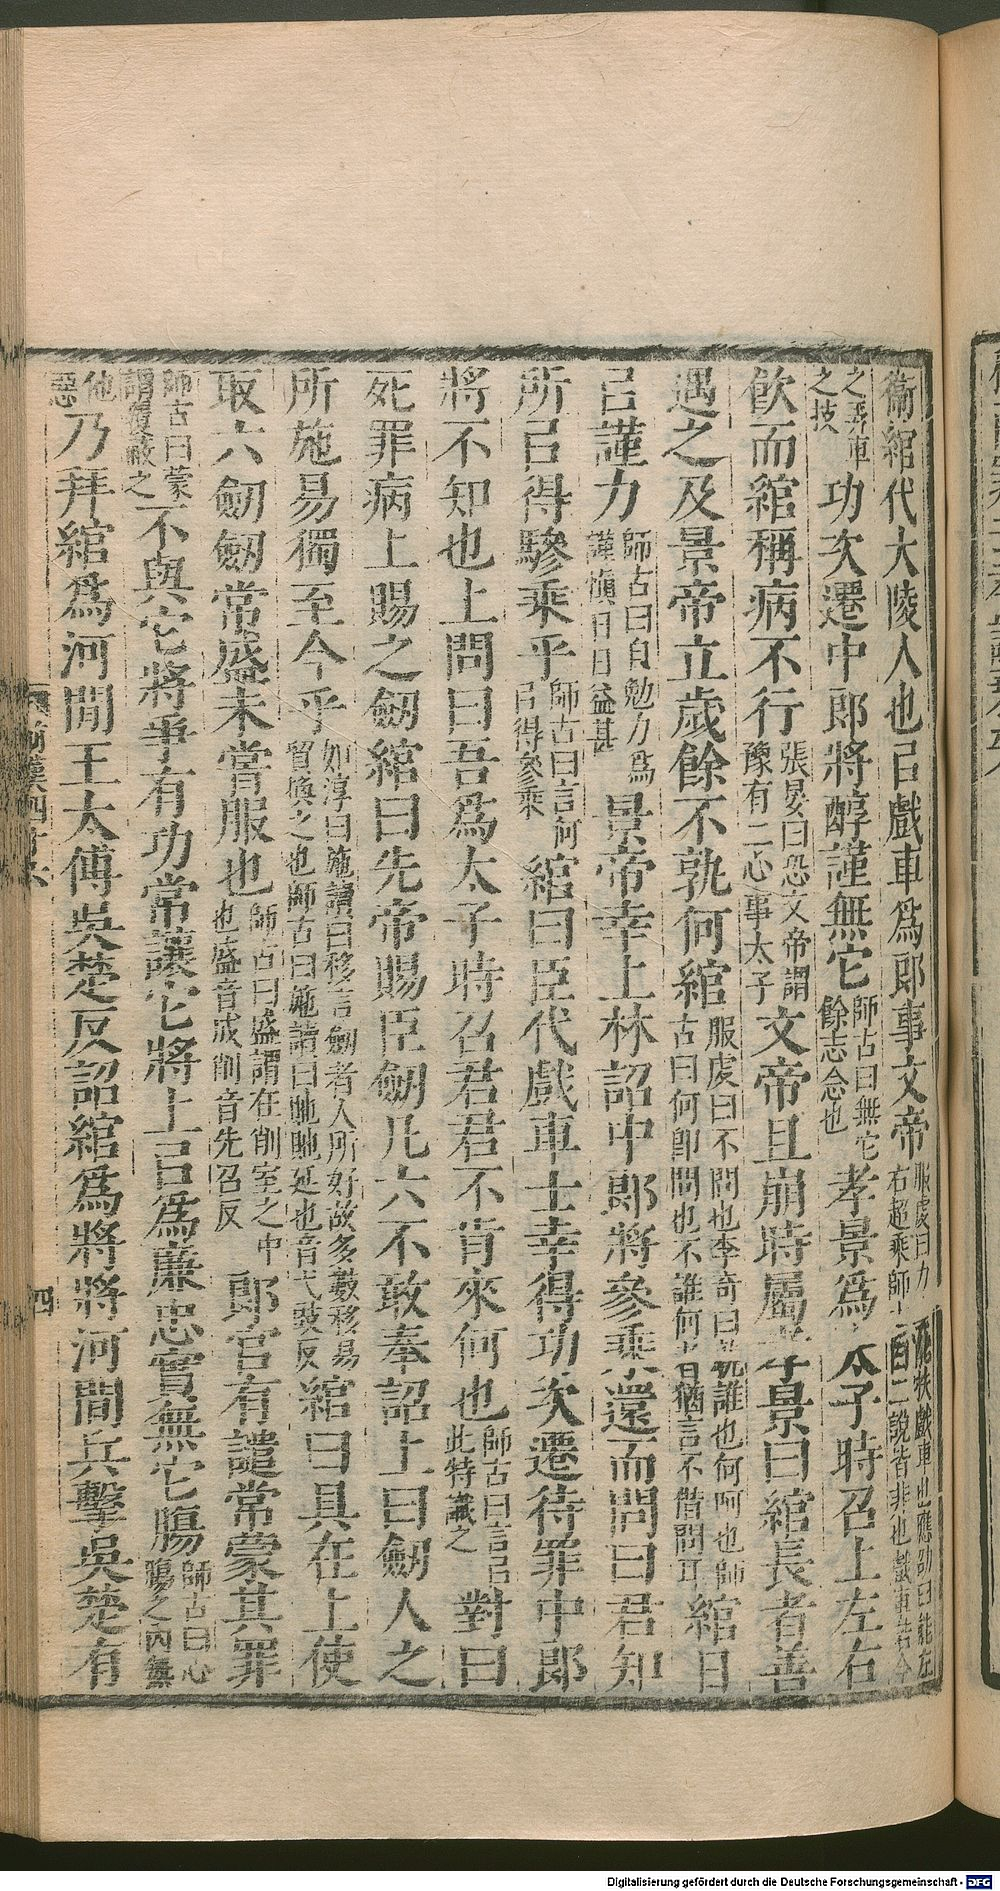 衞綰代大陵人也㠯戲車爲郎事文帝服虔曰力士能扶戲車也應劭曰能左右超乘師古曰二說皆非也戲車若今
之弄車之技功次遷中郎將醇謹無它師古曰無它餘志念也孝景爲太子時召上左右
飮而綰稱病不行張晏曰恐文帝謂豫有二心事太子文帝且崩時屬孝景曰綰長者善
遇之及景帝立歲餘不孰何綰服虔曰不問也李奇曰孰誰也何呵也師古曰何卽問也不誰何者猶言不借問耳綰日
㠯謹力師古曰自勉力爲謹愼日日益甚景帝幸上林詔中郎將參乘還而問曰君知
所㠯得驂乘乎師古曰言何㠯得參乘綰曰臣代戲車士幸得功次遷待罪中郎
將不知也上問曰吾爲太子時召君君不肯來何也師古曰言㠯此特識之對曰
死罪病上賜之劒綰曰先帝賜臣劒凡六不敢奉詔上曰劒人之
所施易獨至今乎如淳曰施讀曰移言劒者人所好故多數移易貿換之也師古曰施讀曰貤貤延也音弋豉反綰曰具在上使
取六劒劒常盛未嘗服也師古曰盛謂在削室之中也盛音成削音先召反郎官有譴常蒙其罪
師古曰蒙謂覆蔽之不與它將爭有功常讓它將上㠯爲廉忠實無它腸師古曰心腸之內無
他惡乃拜綰爲河間王太傅吳楚反詔綰爲將將河間兵擊吳楚有
前漢四十六
四
Digitalisierung gefördert durch die Deutsche Forschungsgemeinschaft - DFG